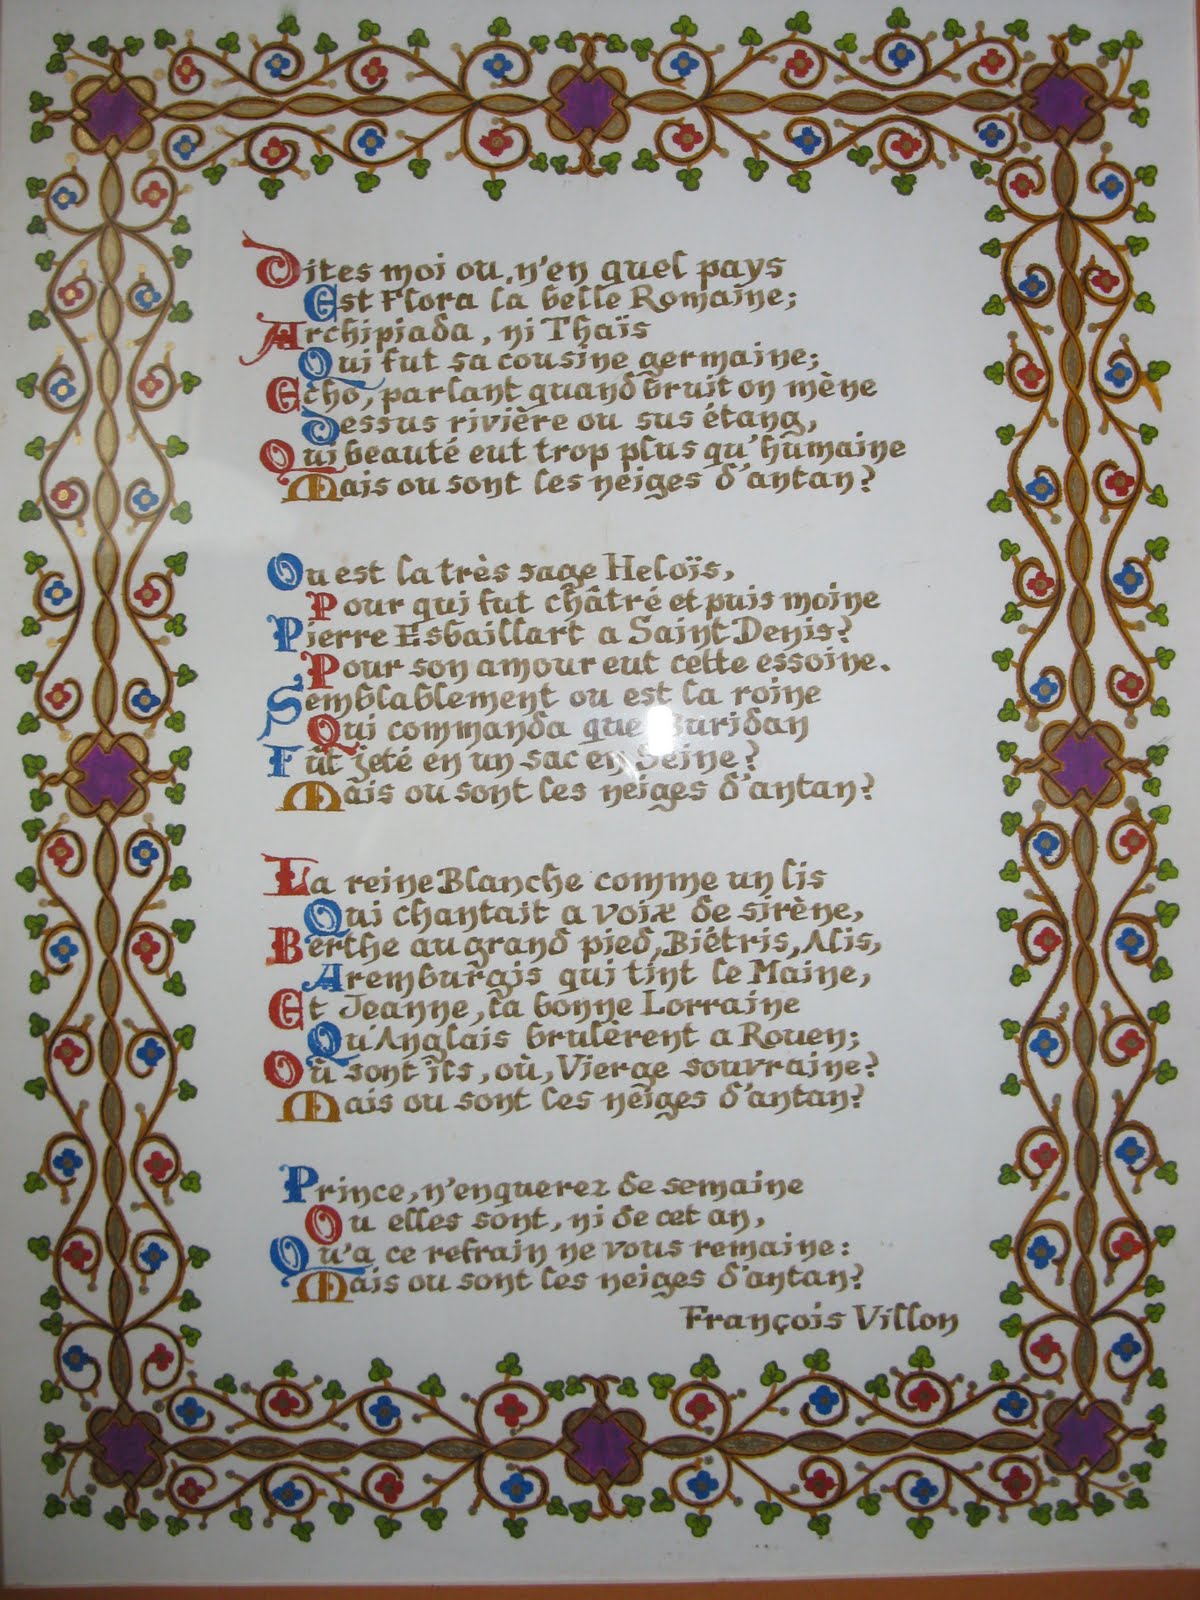 Dites moi ou, n'en quel pays
Est Flora la belle Romaine;
Archipiada, ni Thaïs
Qui fut sa cousine germaine;
Echo, parlant quand bruit on mène
Dessus rivière ou sus étang,
Qui beauté eut trop plus qu'humaine
Mais ou sont les neiges d'antan?
Ou est la très sage Heloïs,
Pour qui fut châtré et puis moine
Pierre Esbaillart a Saint Denis?
Pour son amour eut cette essoine.
Semblablement ou est la roine
Qui commanda que Buridan
Fût jeté en un sac en Seine?
Mais ou sont les neiges d'antan?
La reine Blanche comme un lis
Qui chantait a voix de sirène,
Berthe au grand pied, Biétris, Alis,
Aremburgis qui tint le Maine,
Et Jeanne, la bonne Lorraine
Qu'Anglais brulèrent a Rouen;
Où sont ils, où, Vierge souvraine?
Mais ou sont les neiges d'antan?
Prince, n'enquerez de semaine
Ou elles sont, ni de cet an,
Qu'a ce refrain ne vous remaine:
Mais ou sont les neiges d'antan?
François Villon